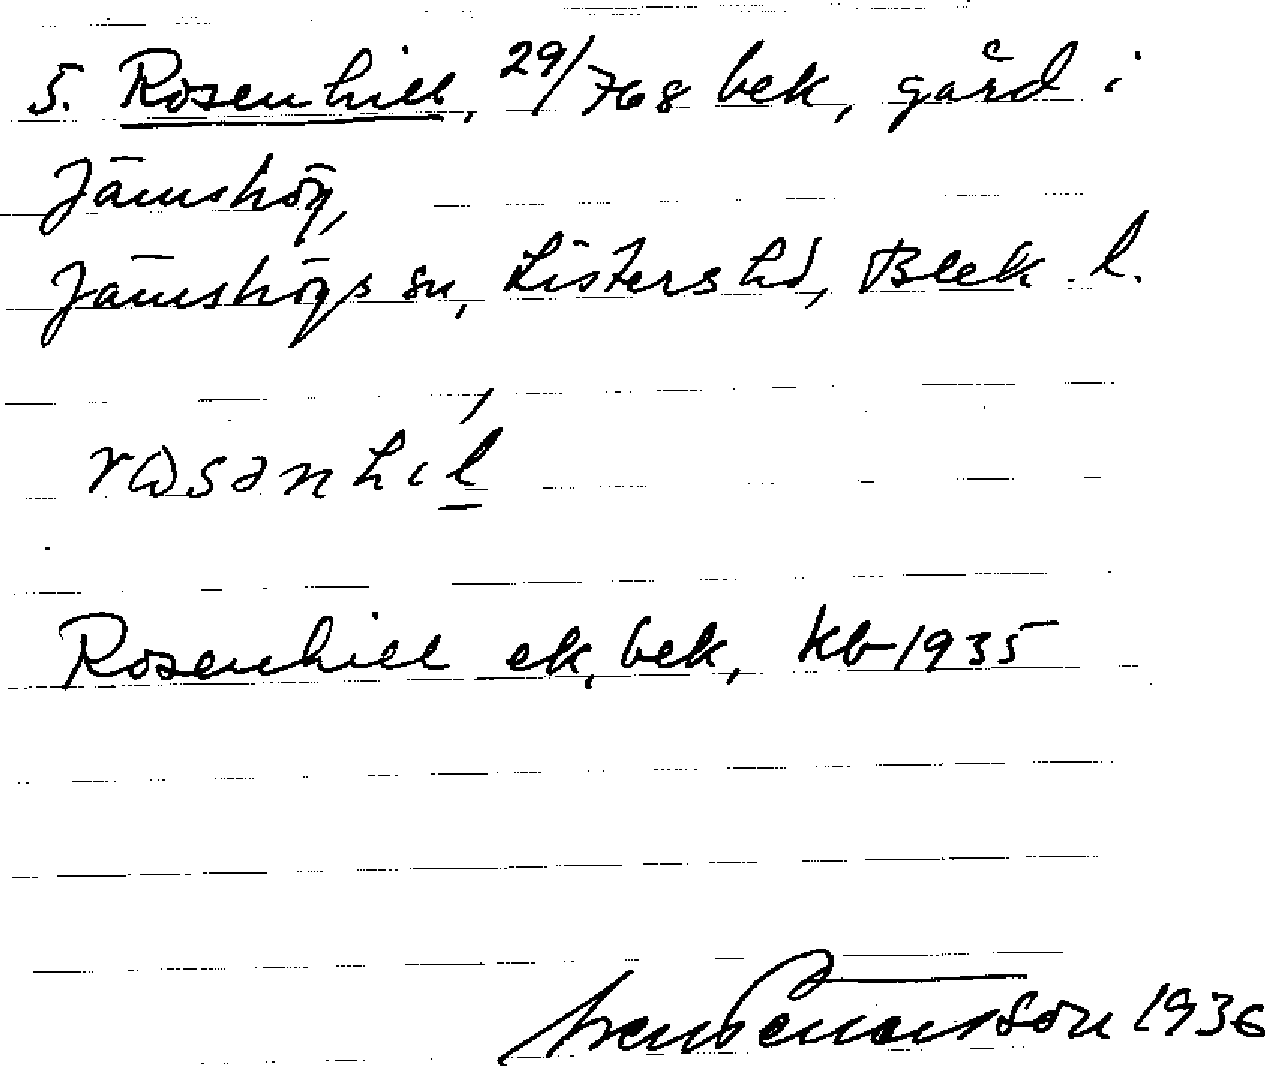 5. Rosenhill, 29/768 bek, gård i
Jämshög,
Jämshögs sn, Listers hd, Blek. l.
rosənhíl
Rosenhill ek. bek, kb 1935
1936